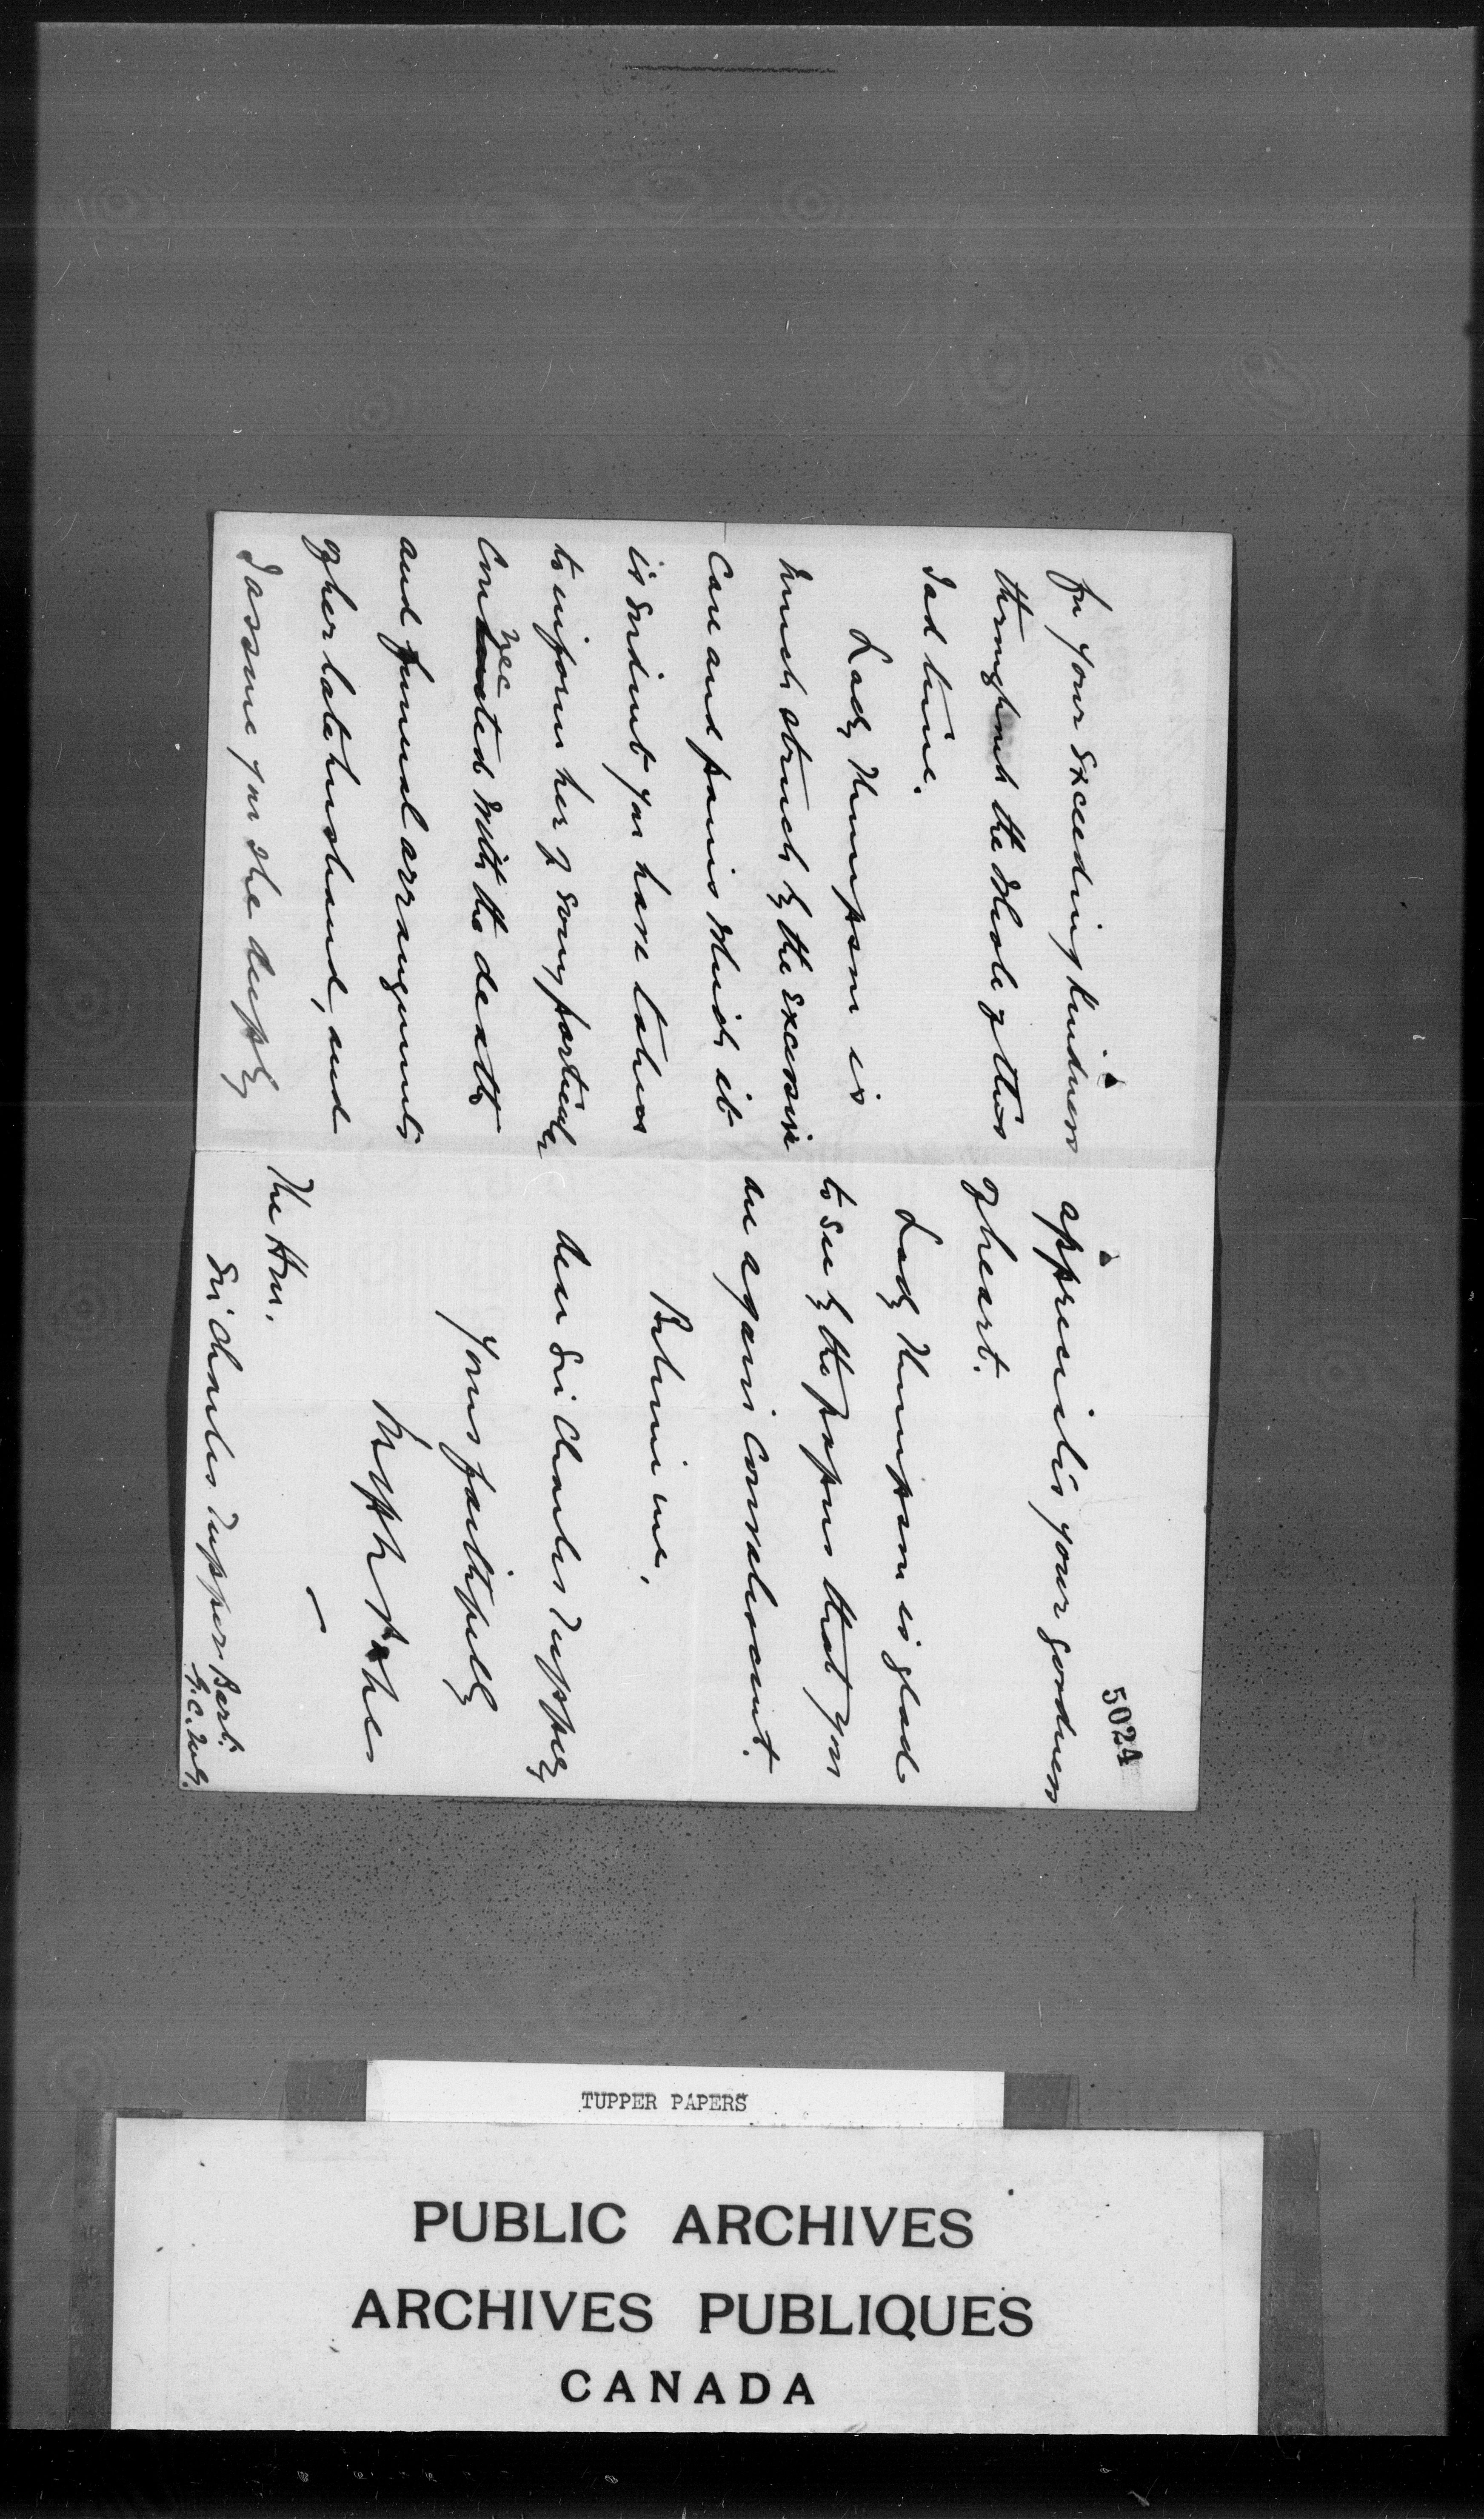 for your exceeding kindness
throughout the whole of this
sad time.
Lady Thompson is
much struck by the excessive
care and pains which it
is evident you have taken
to inform her of every particular
connected with the death
and funeral arrangements
of her late husband, and
I assure you she deeply
5024
appreciates your goodness
of heart.
Lady Thompson is glad
to see by the papers that you
are again convalescent.
Believe me,
dear Sir Charles Tupper,
Yours faithfully
The Hon.
Sir Charles Tupper Bart.
G.C.M.G.
TUPPER PAPERS
PUBLIC ARCHIVES
ARCHIVES PUBLIQUES
CANADA